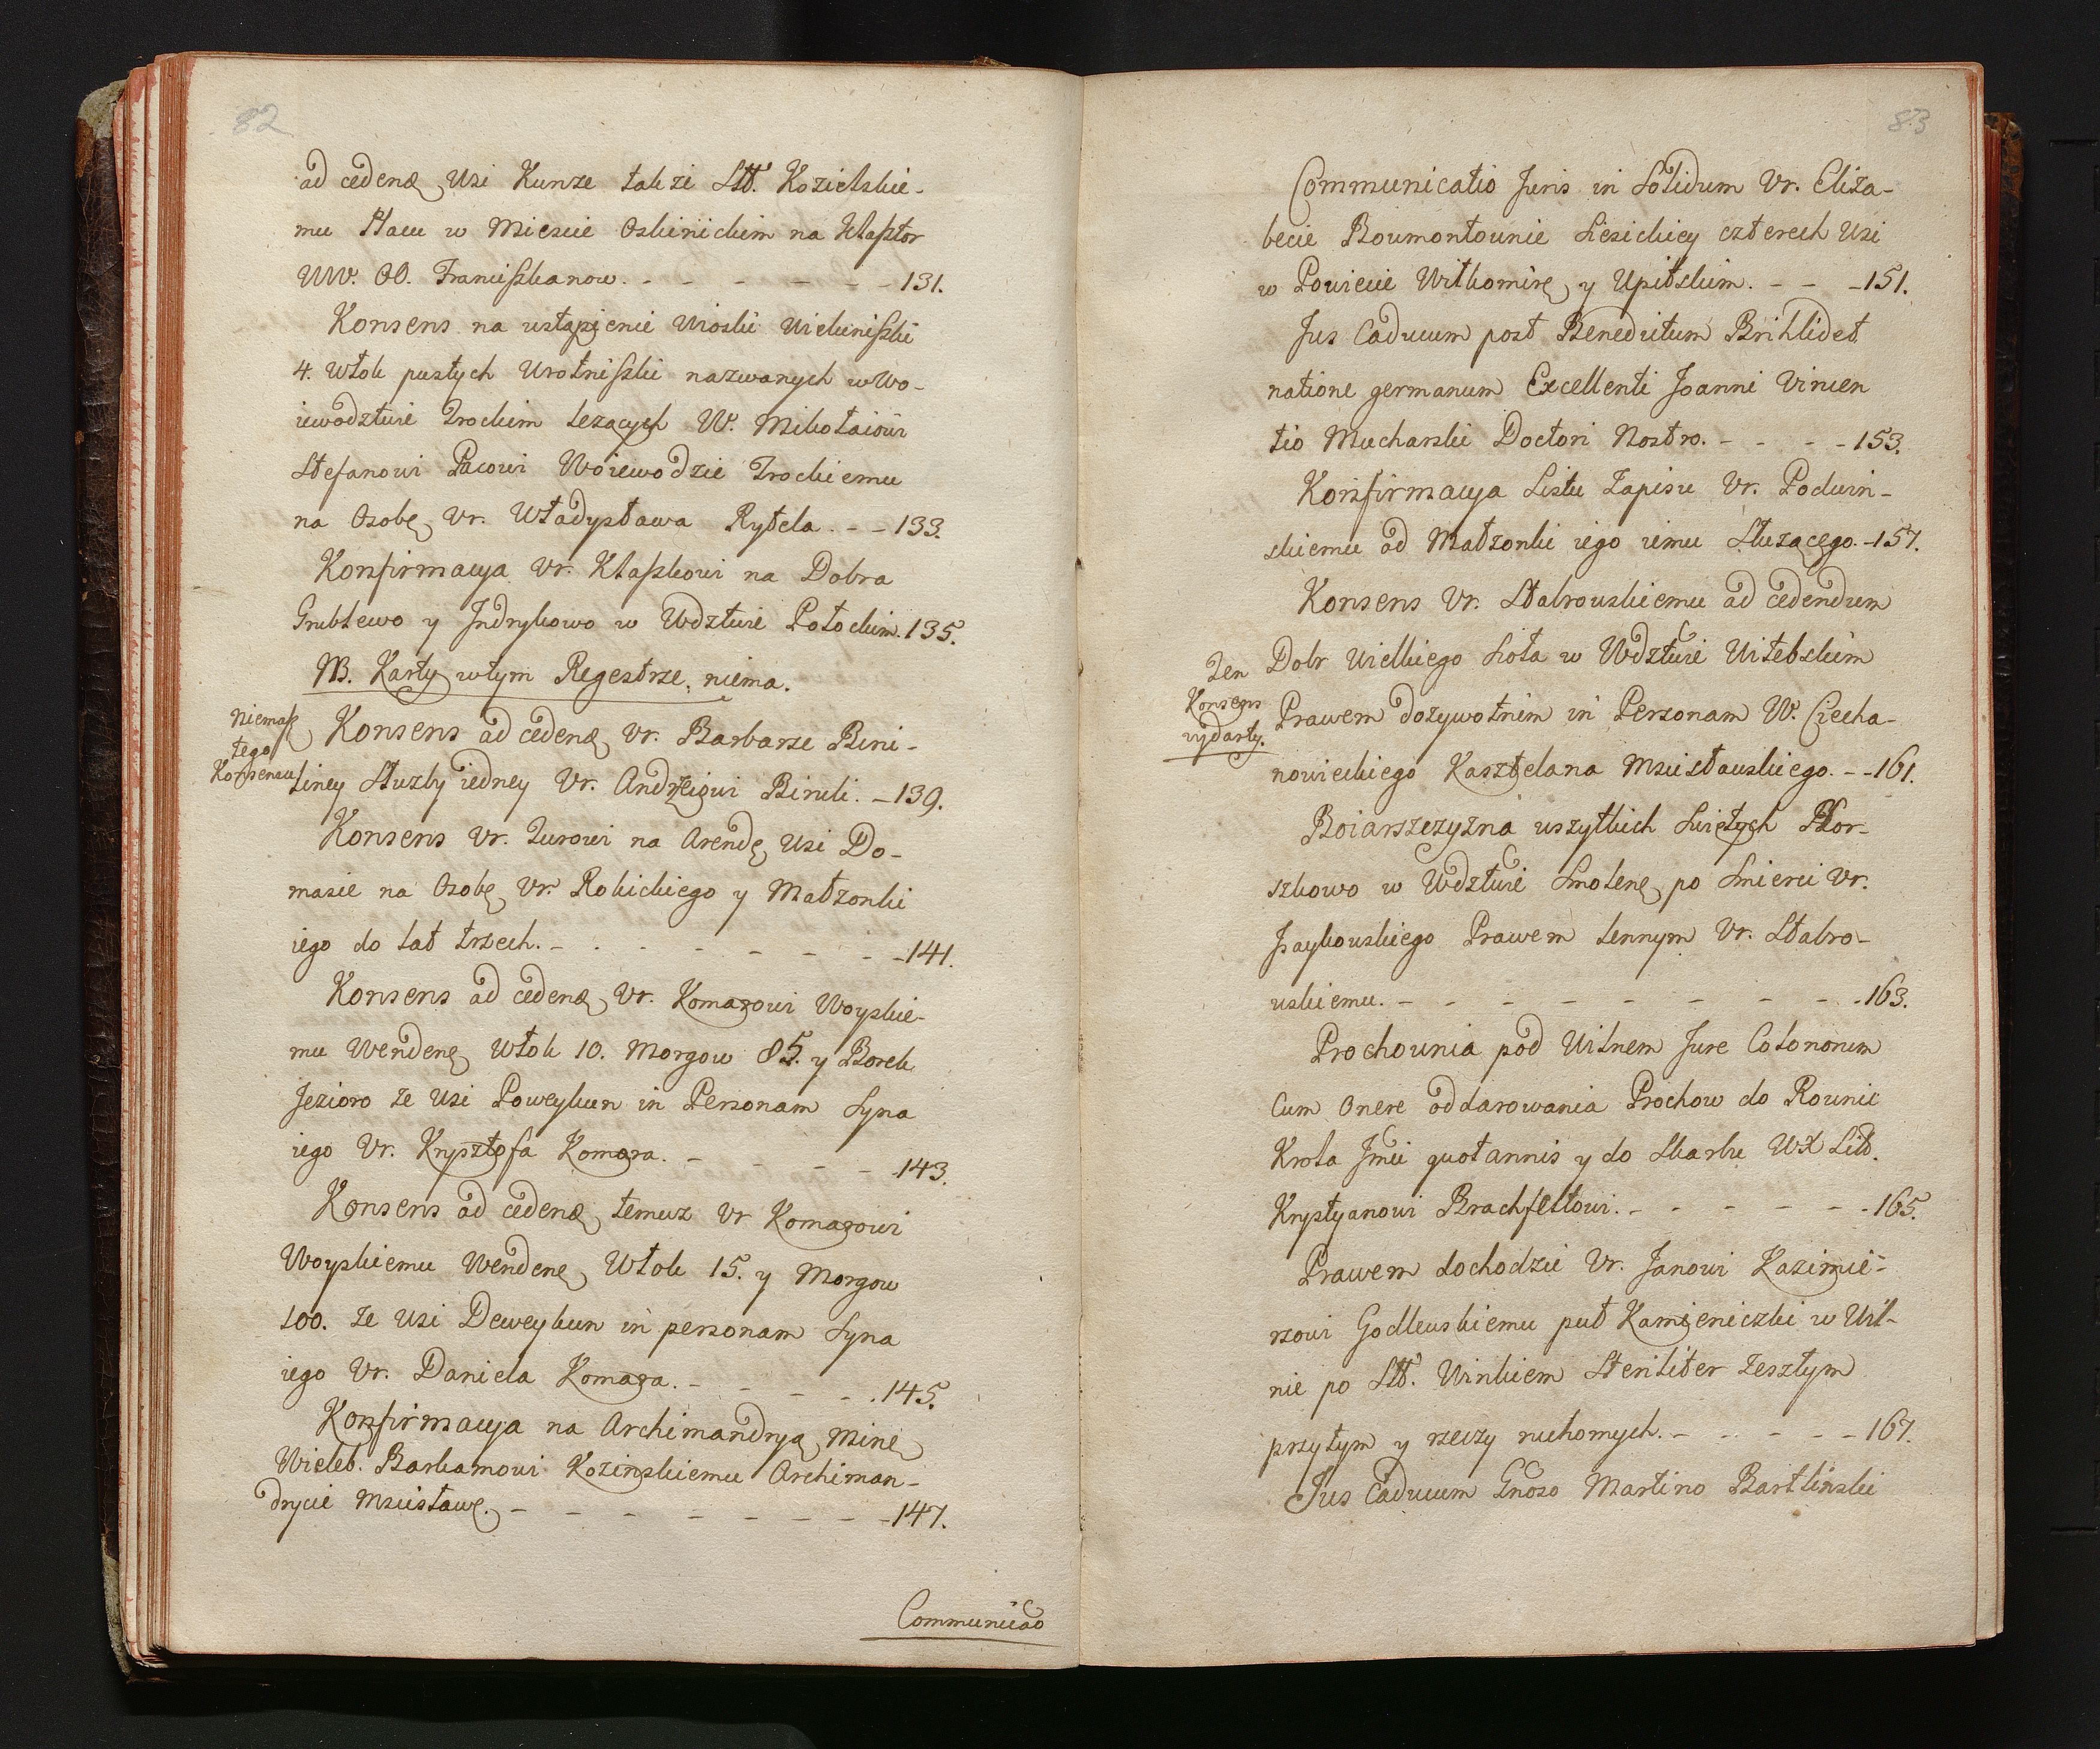 82
ad cedenđ Wsi Kunze także Stt. Kozielskie-
mu Placu w Miescie Oskinickim na Klasztor
WW. OO. Franciszkanow. - - - - - - 131.
Konsens na ustąpienie Wioski Wieluniszki
4. Włok pustych Wrotniszki nazwanych w Wo-
iewodztwie Trockim lezących W. Mikołaiowi
Stefanowi Pacowi Woiewodzie Trockiemu
na Osobę Vr. Władysława Rytela. - - 133.
Konfirmacya Vr. Kłaszkowi na Dobra
Grublewo y Jndrykowo w Wdztwie Połockim. 135.
NB. Karty w tym Regestrze niema.
Niemasz
tego
Konsensu
Konsens ad cedenđ Vr. Barbarze Bini-
liney Służby iedney Vr. Andrzeiowi Biruli. - 139.
Konsens Vr. Zurowi na Arendę Wsi Do-
masie na Osobę Vr. Rokickiego y Małżonki
iego do lat trzech. - - - - - - - 141.
Konsens ad cedenđ Vr. Komarowi Woyskie-
mu Wendenę Włok 10. Morgow 85. y Borek
Jezioro ze Wsi Poweykun in Personam Syna
iego Vr. Krysztofa Komara. - - - - 143.
Konsens ad cedenđ temuz Vr Komarowi
Woyskiemu Wendenę Włok 15. y Morgow
100. ze Wsi Deweykun in personam Syna
iego Vr. Daniela Komara. - - - - 145.
Konfirmacya na Archimandryą Minę
Wieleb. Barkamowi Kozinskiemu Archiman-
drycie Mscisławę. - - - - - - - 147.
Communicao
83
Communicatio Juris in Solidum Vr. Eliza-
becie Boumontownie Siesickiey czterech Wsi
w Powiecie Wiłkomirę y Upitskim. - - - 151.
Jus Caducum post Benedictum Brihlidet
natione germanum Excellenti Joanni Vincen
tio Mucharski Doctori Nostro. - - - - 153.
Konfirmacya Listu Zapisu Vr. Podwin-
skiemu od Małżonki iego iemu Służącego. - 157.
Konsens Vr. Stabrowskiemu ad cedendum
Ten
Konsens
wydarty.
Dobr Wielkiego Sioła w Wdztwie Witebskim
Prawem dożywotnim in Personam W. Ciecha-
nowieckiego Kasztelana Mscisławskiego. - - 161.
Boiarszczyzna wszytkich Swiętych Bor-
szkowo w Wdztwie Smolenę po Smierci Vr.
Jsaykowskiego Prawem Lennym Vr. Stabro-
wskiemu. - - - - - - - - 163.
Prochownia pod Wilnem Jure Colonorum
Cum Onere oddarowania Prochow do Rownie
Krola Jmci quotannis y do Skarbu WX Litt.
Krystyanowi Brachfeltowi. - - - - - - 165.
Prawem dochodzie Vr. Janowi Kazimie-
rzowi Godlewskiemu puł Kamieniczki w Wil-
nie po Stt. Winkiem Steriliter zeszłym
przytym y rzeczy ruchomych. - - - - - 167.
Jus Caducum Gnoso Martino Bartlinski